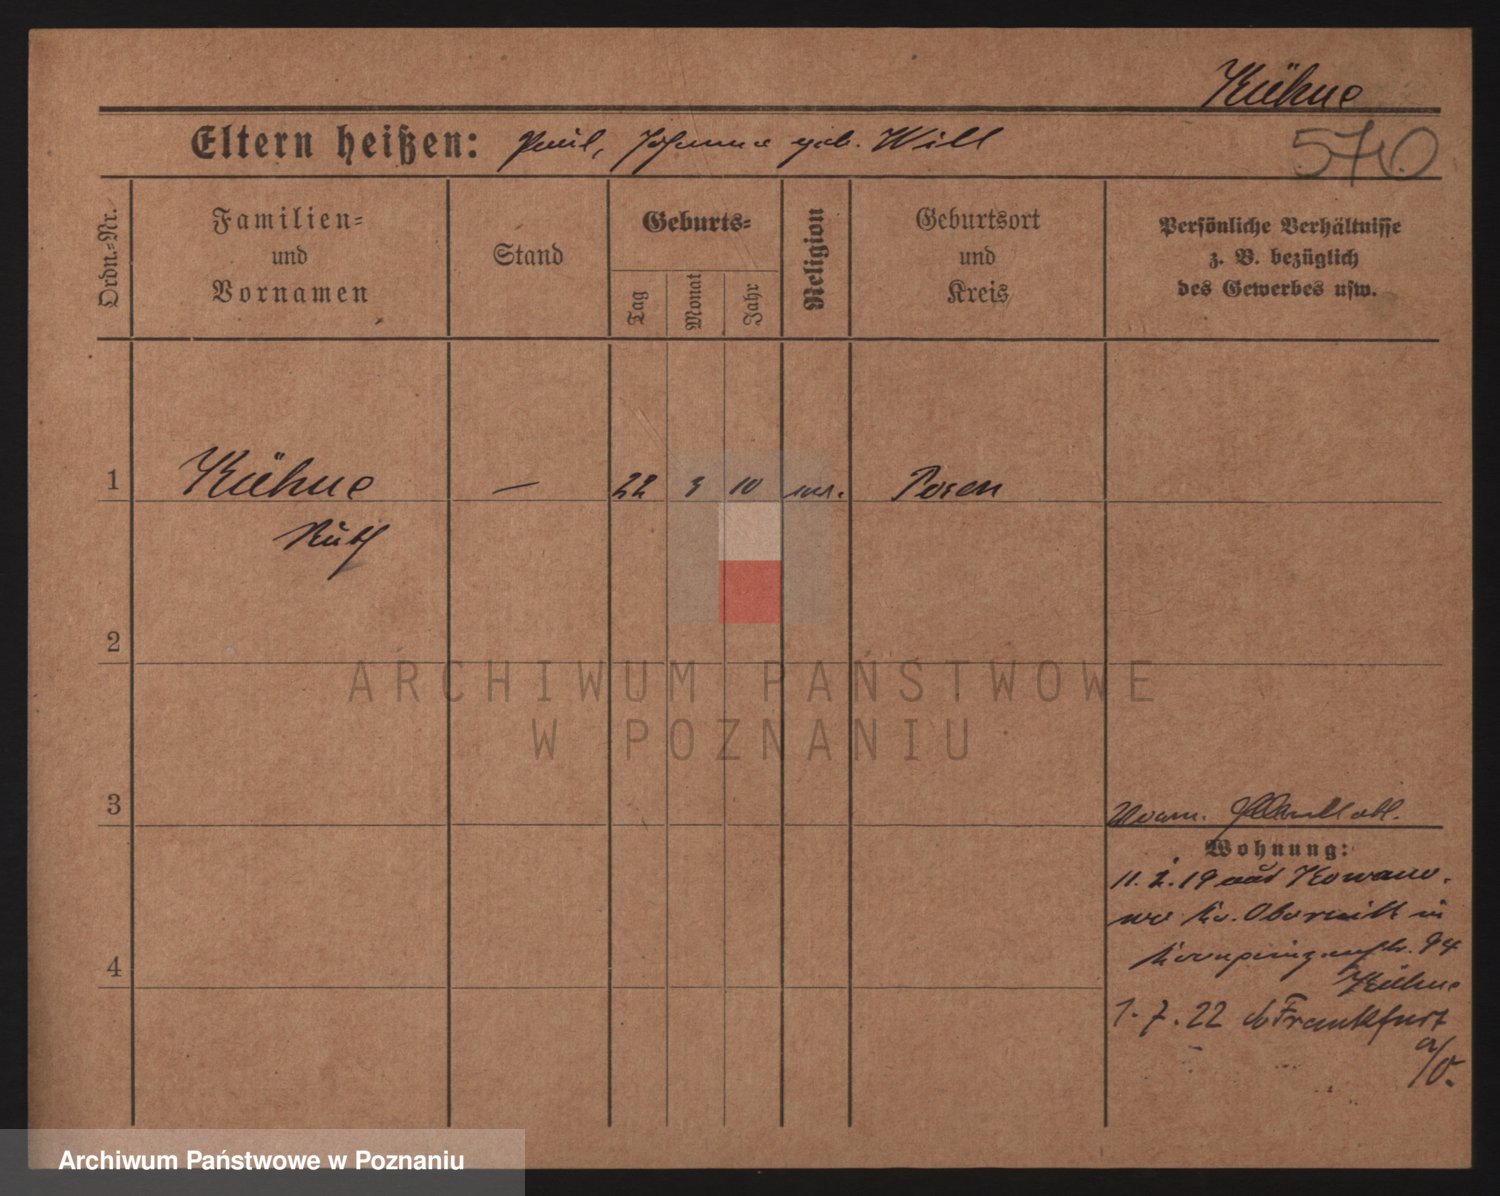 Kühne
Eltern heißen: Paul, Johanna geb. Will
570
Ordn.-Nr.
Familien-
und
Vornamen
Stand
Geburts-
Tag
Monat
Jahr
Religion
Geburtsort
und
Kreis
Persönliche Verhältnisse
z. B. bezüglich
des Gewerbes usw.
1
Kühne
—
22
3
10
Posen
Ruth
2
ARCHIWUM PAŃSTWOWE
W POZNANIU
3
Wohnung:
11. 2. 19 aus Kowano-
wo Kr. Obornik in
94
Kühne
4
1. 7. 22 Frankfurt
a/O.
Archiwum Państwowe w Poznaniu